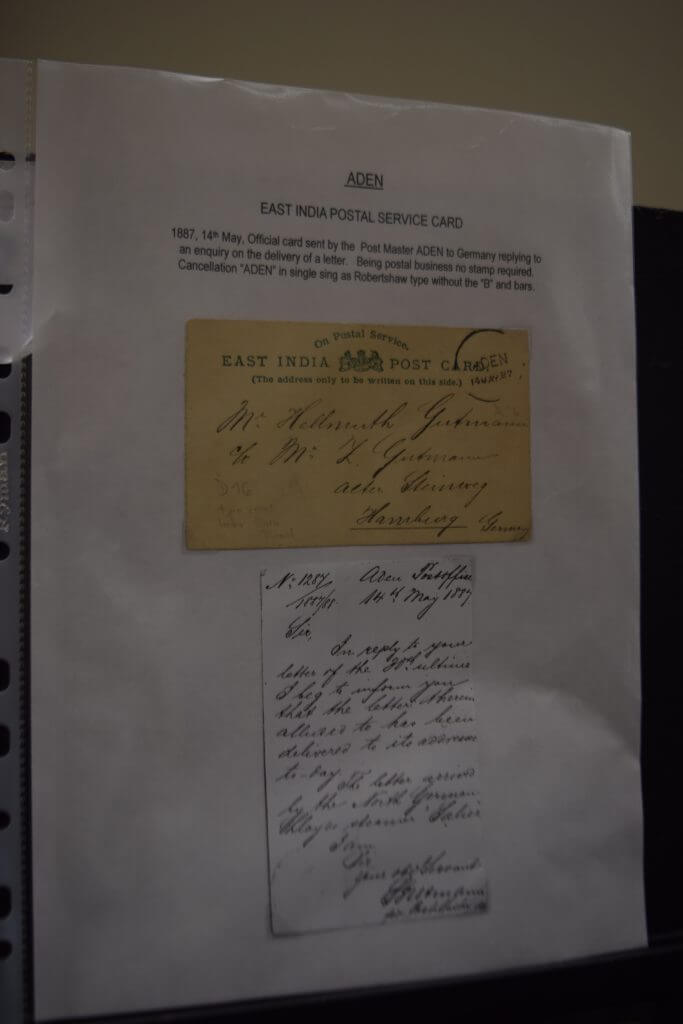 ADEN
EAST INDIA POSTAL SERVICE CARD
1887, 14th May, Official card sent by the Post Master ADEN to Germany replying to
an enquiry on the delivery of a letter. Being postal business no stamp required.
Cancellation "ADEN" in single sing as Robertshaw type without the "B" and bars.
On Postal Service.
EAST INDIA POST CARD
(The address only to be written on this side.)
ADEN
14 MY 87
Mr Hellmuth Gutmann
c/o Mr L. Gutmann
alter Steinweg
Hamburg Germany
D76
No 1287 Aden Postoffice
1887/88. 14th May 1887
Sir,
In reply to your
letter of the 30th ultimo
I beg to inform you
that the letter therein
allused to has been
delivered to its addressee
to-day. The letter arrived
by the North German
steamer
I am
Sir
your obdt Servant